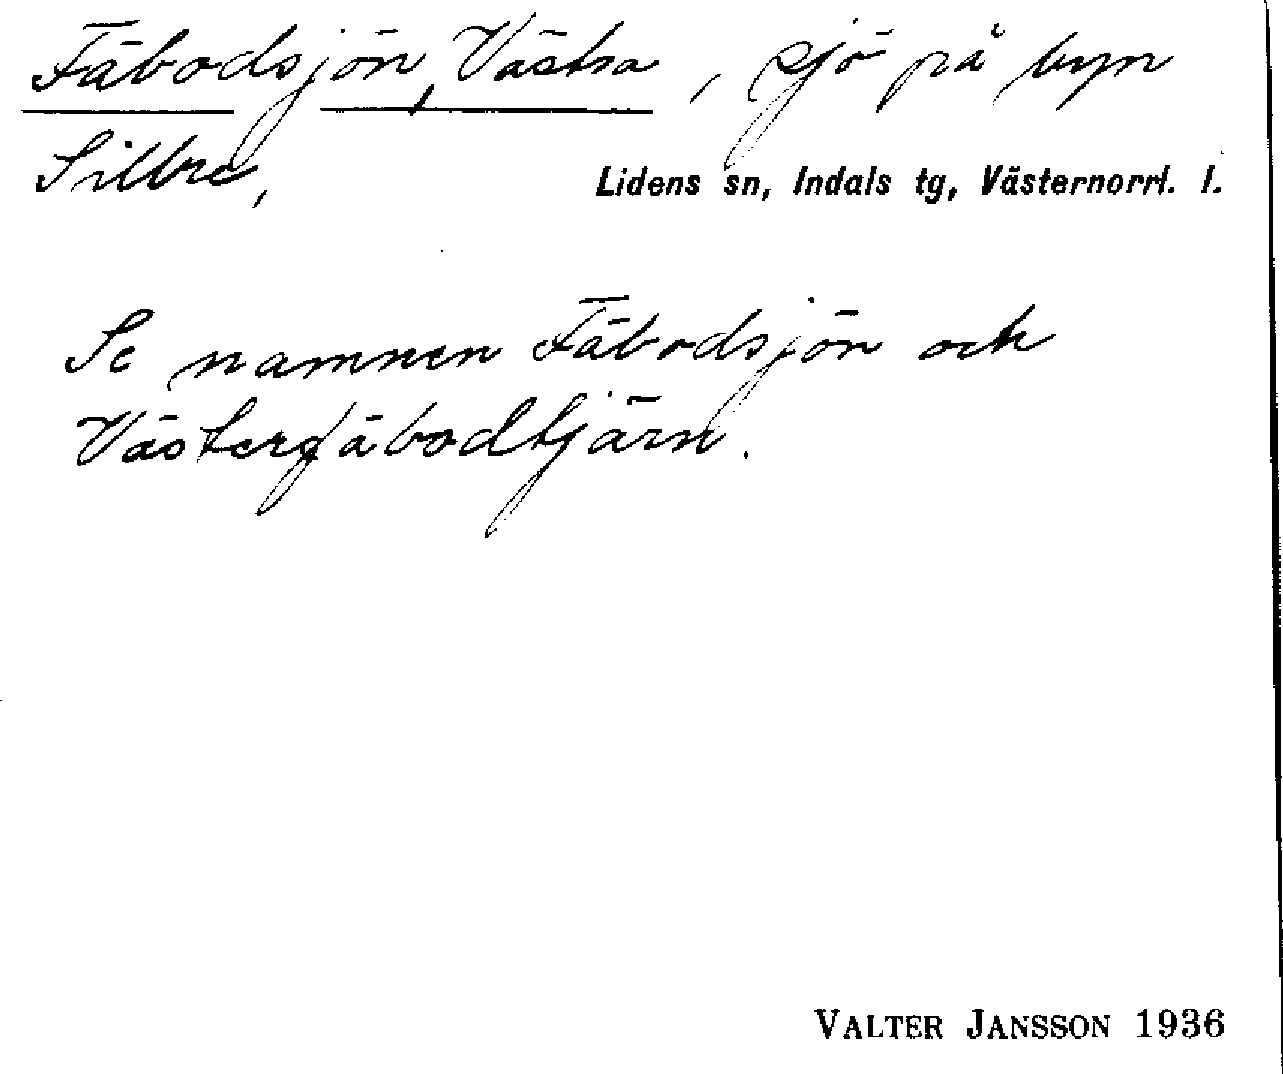 Fäbodsjön, Västra, sjö på byn
Sillre, Lidens sn, Indals tg, Västernorrl. l.
Se namnen Fäbodsjön och
Västerfäbodtjärn.
VALTER JANSSON 1936